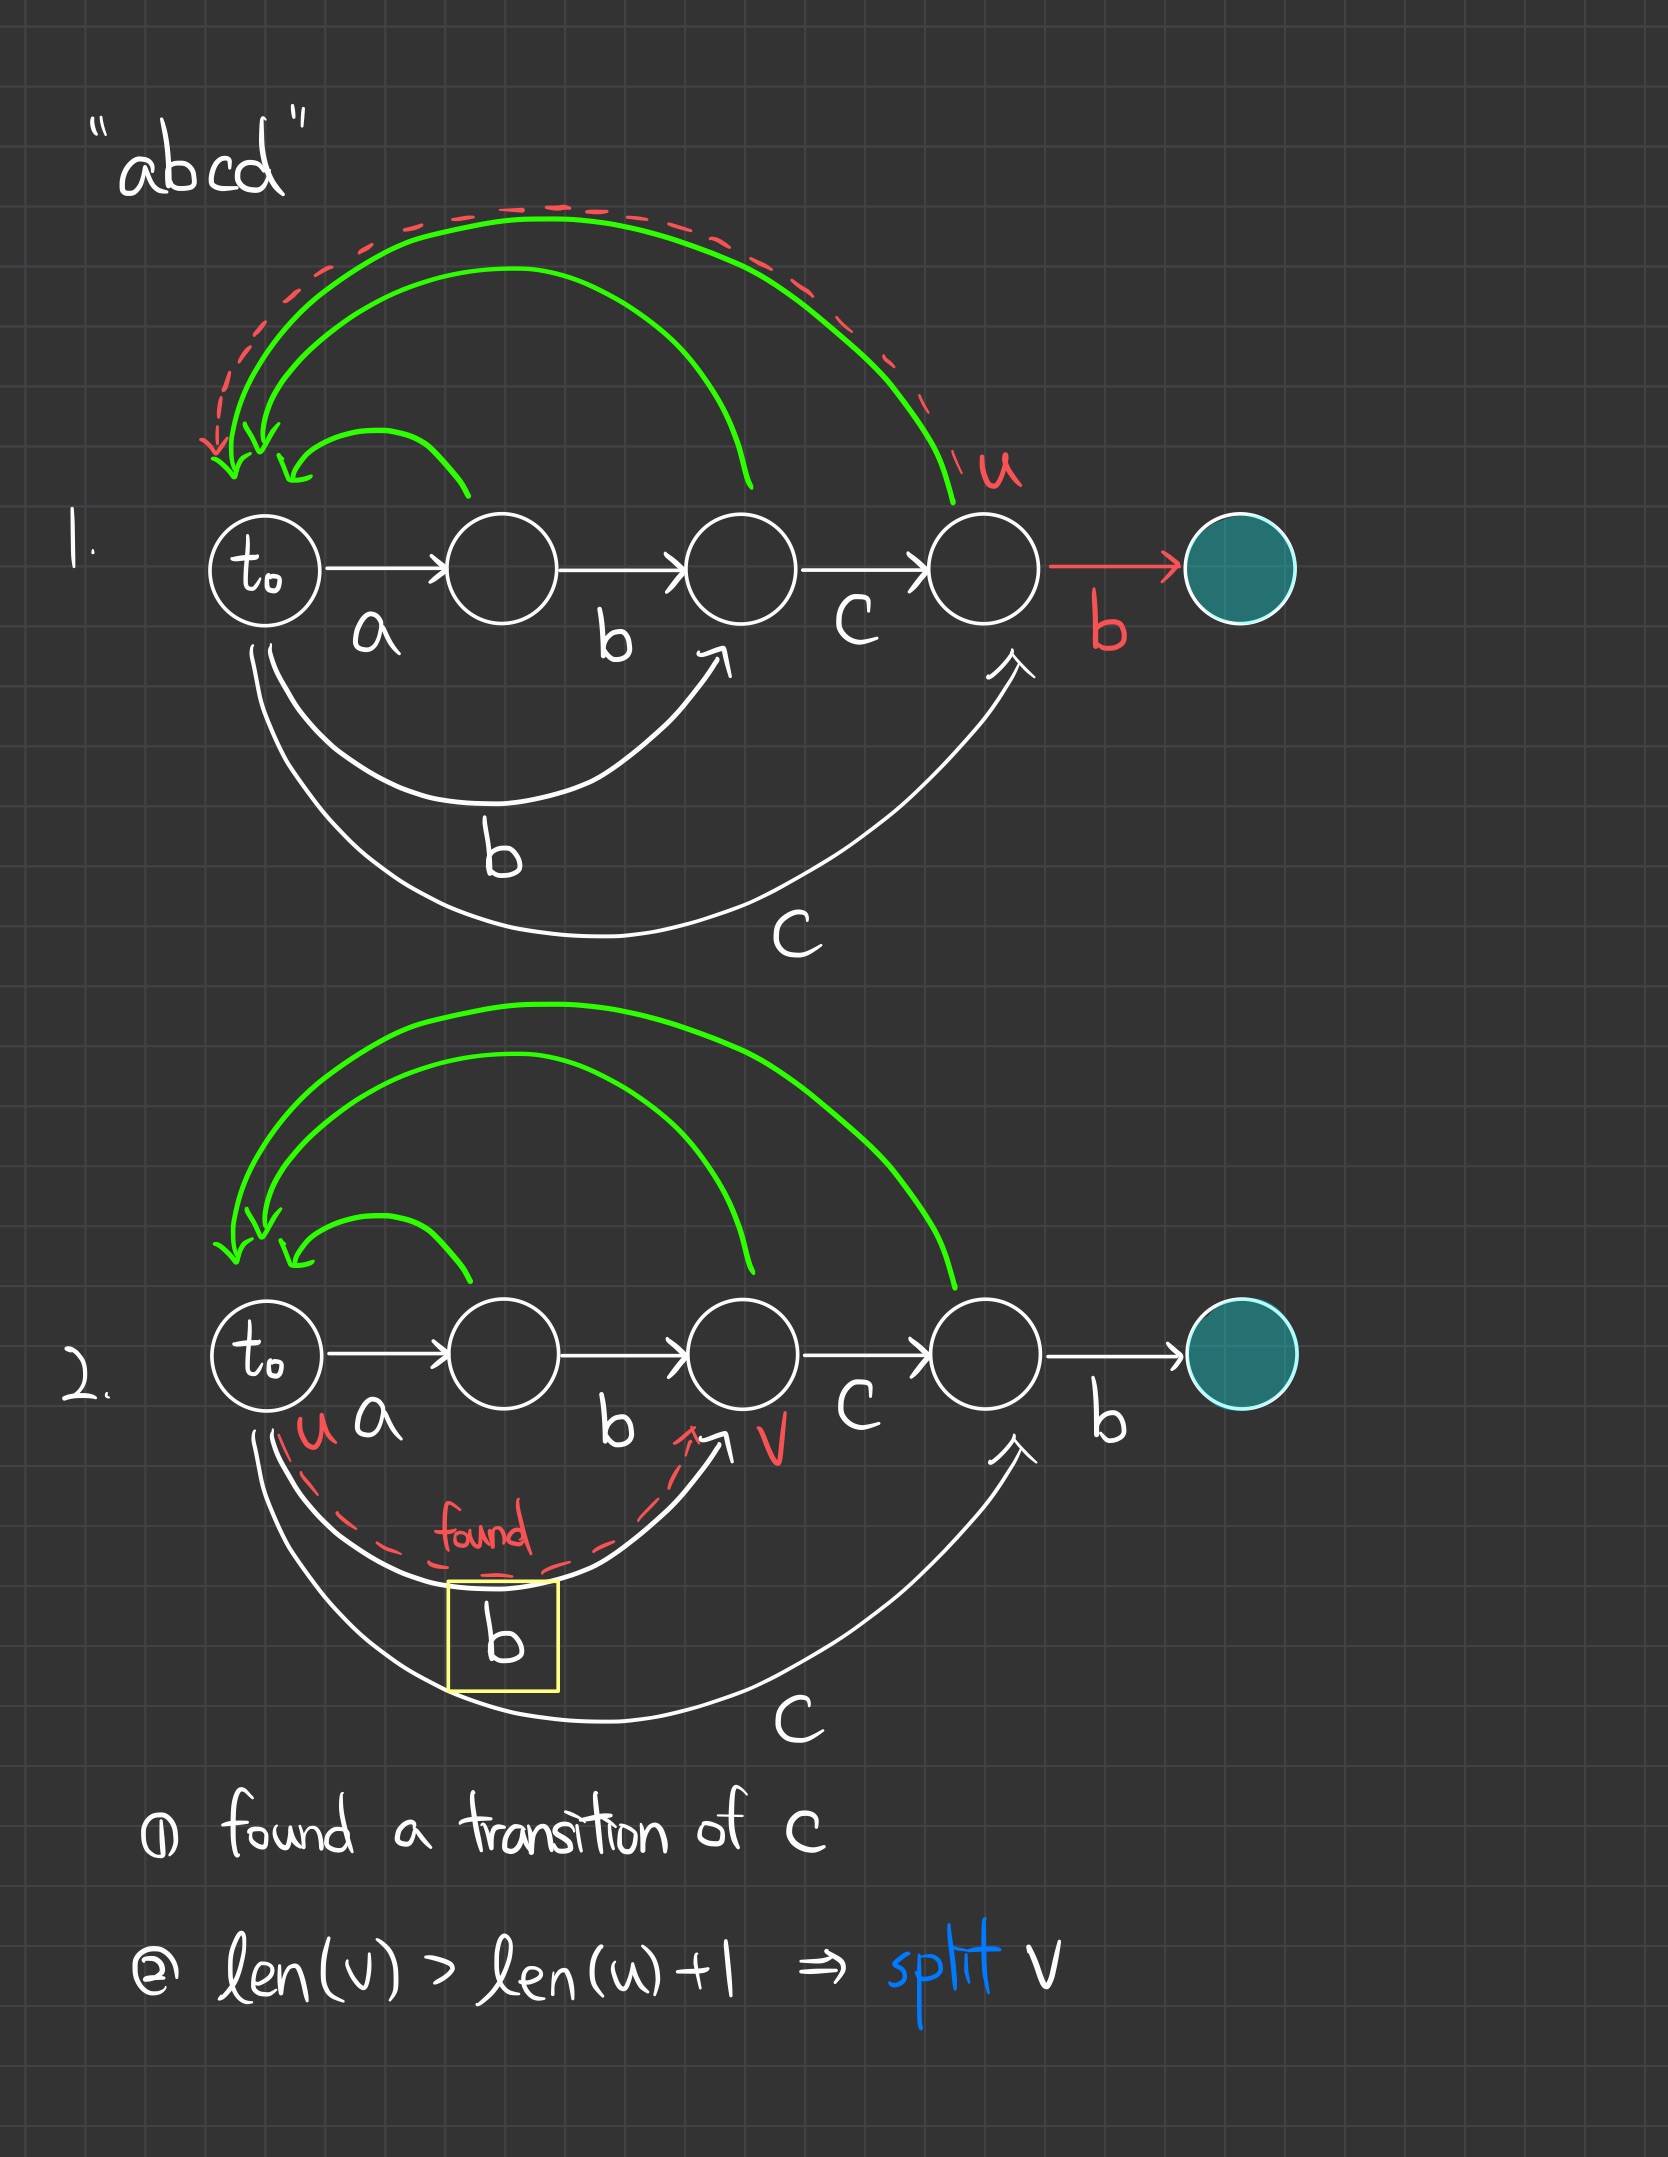 "abcd"
u
1.
t₀
a
b
c
b
b
c
2.
t₀
u
a
b
v
c
b
found
b
c
① found a transition of c
② len(v) > len(u)+1 ⇒ split v